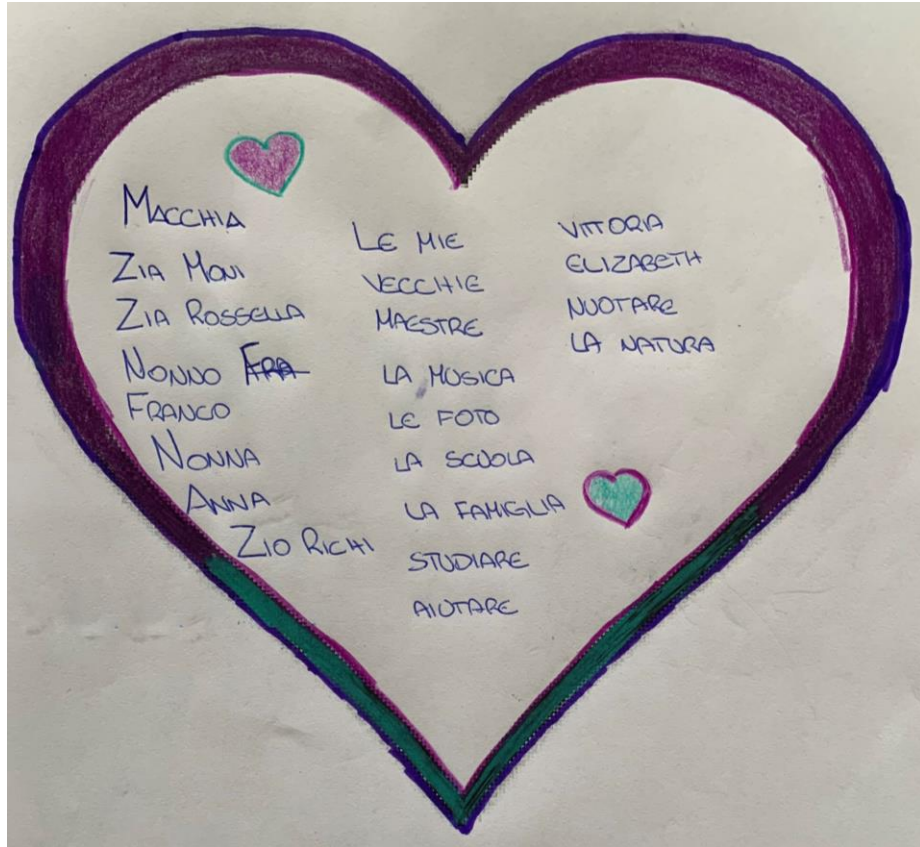 MACCHIA
ZIA MONI
ZIA ROSSELLA
NONNO FRA
FRANCO
NONNA
ANNA
ZIO RICHI
LE MIE
VECCHIE
MAESTRE
LA MUSICA
LE FOTO
LA SCUOLA
LA FAMIGLIA
STUDIARE
AIUTARE
VITTORIA
ELIZABETH
NUOTARE
LA NATURA